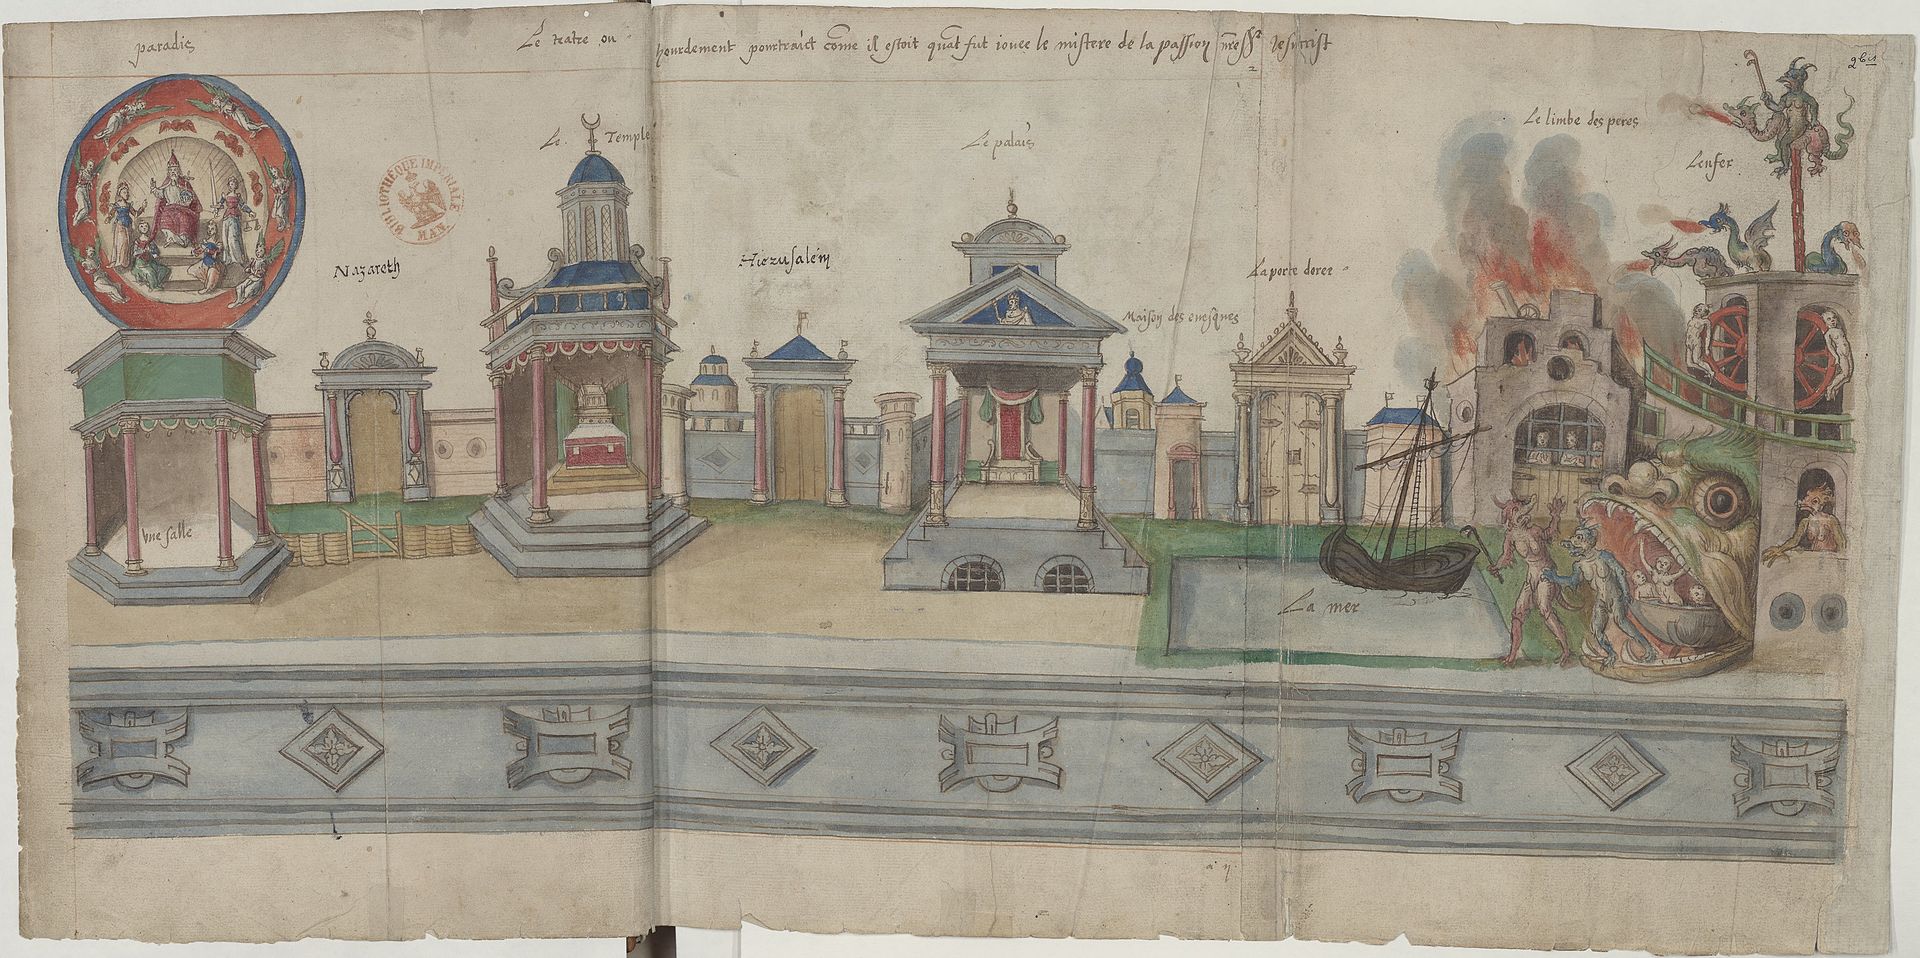 paradis
Le teatre ou hourdement pourtraict come il estoit quāt fut iouee le mistere de la passion nres Jesucrist
2bis
Nazareth
BIBLIOTHÈQUE IMPÉRIALE
MAN.
Le Temple
Hierusalem
Le palais
Maison des evesques
La porte doree
Le limbe des peres
Lenfer
Vne salle
La mer
a ij